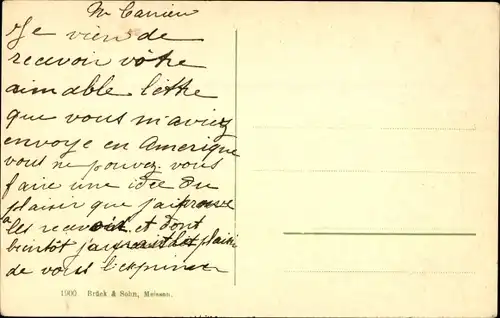 Mr Carrien
Je vien de
recevoir vôtre
aimable lettre
que vous m'aviez
envoye en Amerique
vous ne pouvez vous
faire une idée du
plaisir que j'ai
à les recevoir et dont
bientôt j'aurait plaisir
de vous l'exprimer
1900 Brück & Sohn, Meissen.